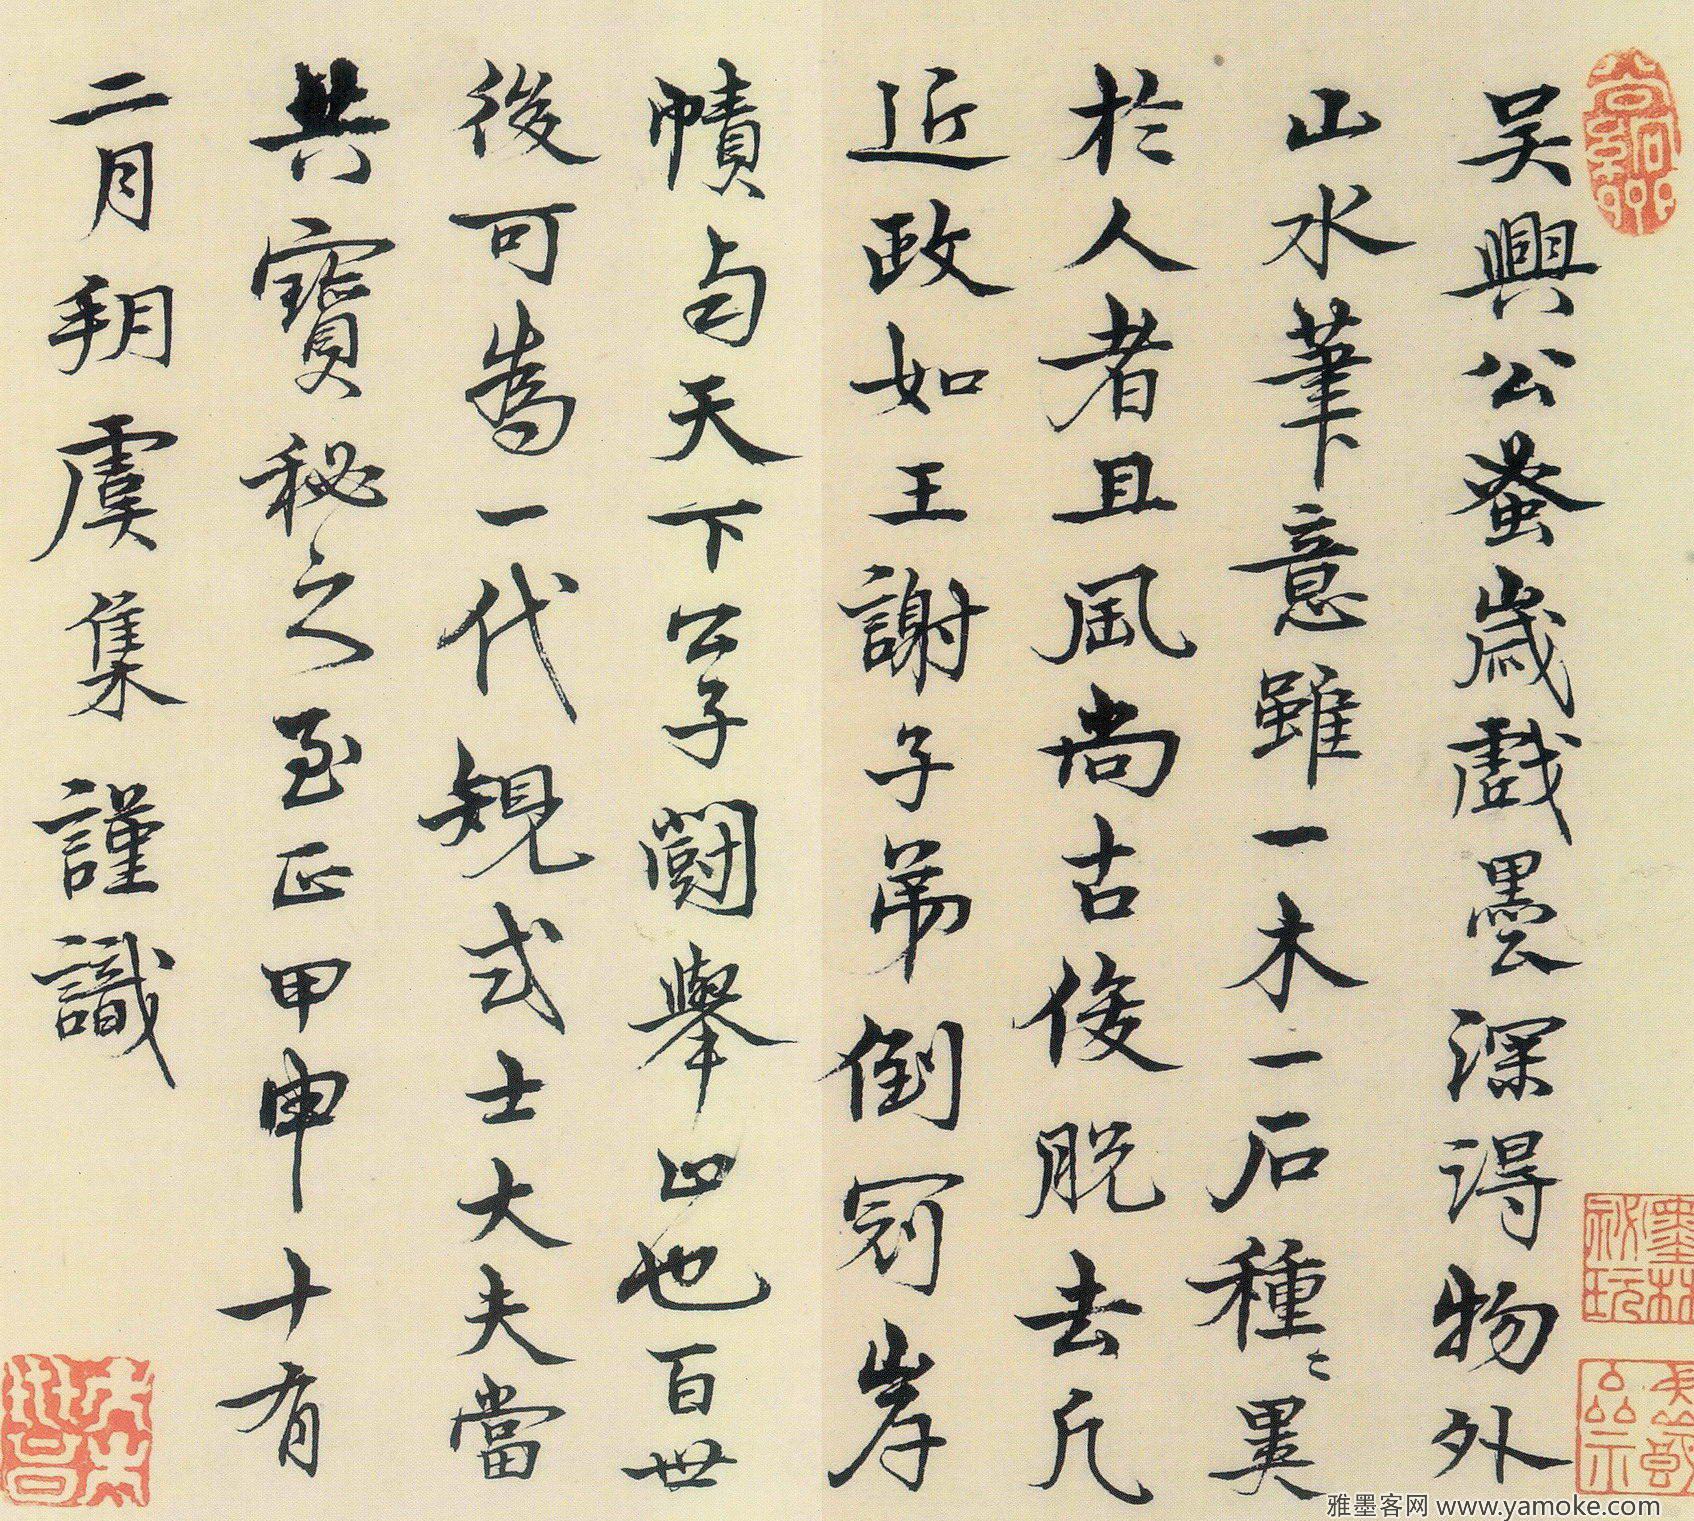 吳興公蚤歲戲墨深得物外
山水筆意雖一木一石種種異
於人者且風尚古俊脫去凡
近政如王謝子弟倒冠岸
幘與天下公子鬪舉止也百世
後可為一代規式士大夫當
共寶秘之至正甲申十有
二月朔虞集謹識
墨林秘玩
雅墨客网 www.yamoke.com